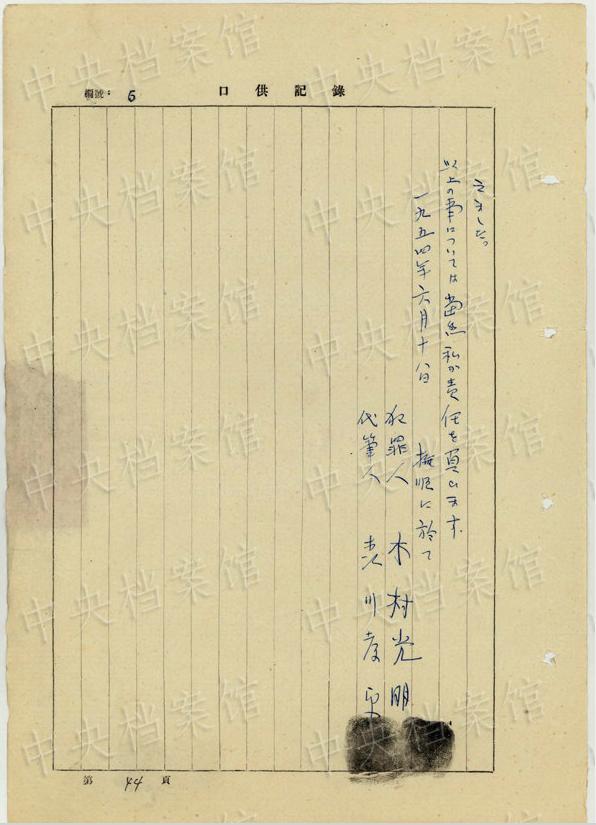 欄號： 5
口供記錄
きました。
以上の事については当然私が責任を負います
一九五四年六月十八日 撫順に於て
犯罪人 木村光明
代筆人 川孝
第 44 頁
中央档案馆